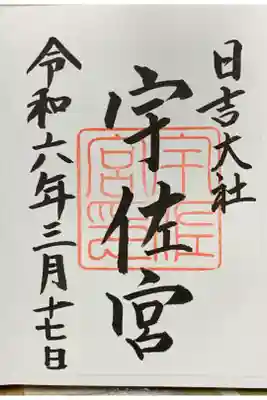 日吉大社
宇佐宮
令和六年三月十七日
宇佐宮璽